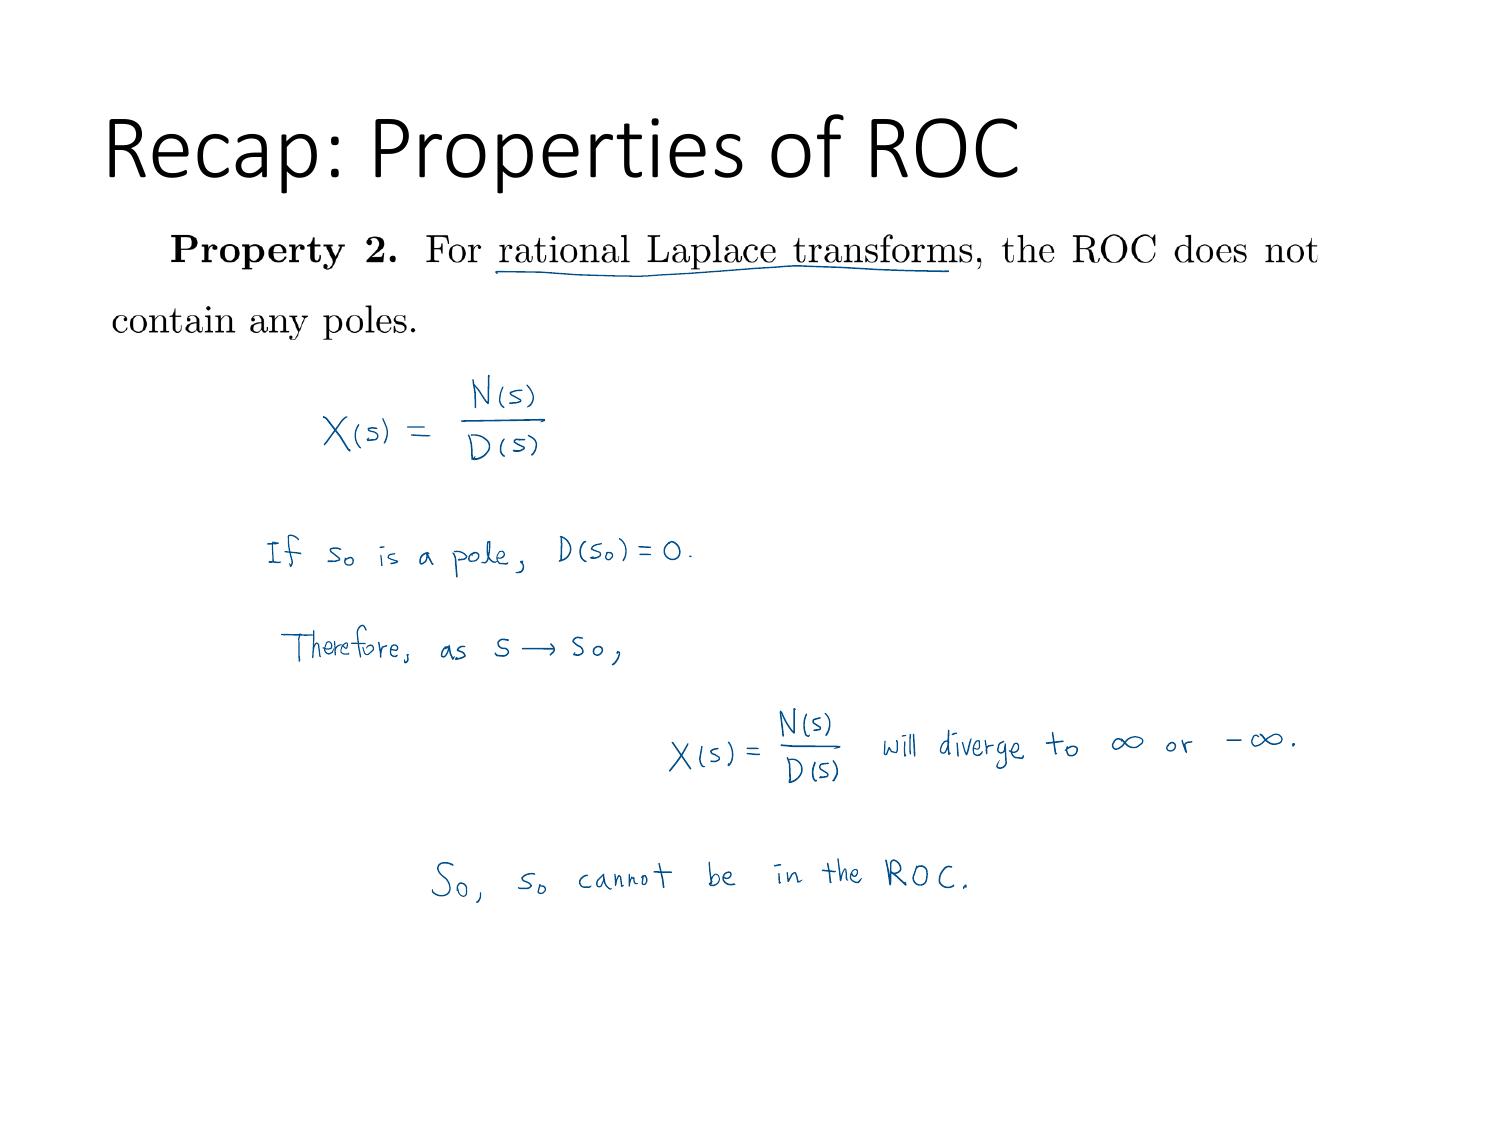 Recap: Properties of ROC
Property 2. For rational Laplace transforms, the ROC does not
contain any poles.
X(s) = N(s) / D(s)
If s₀ is a pole, D(s₀) = 0.
Therefore, as s → s₀,
X(s) = N(s) / D(s) will diverge to ∞ or -∞.
So, s₀ cannot be in the ROC.